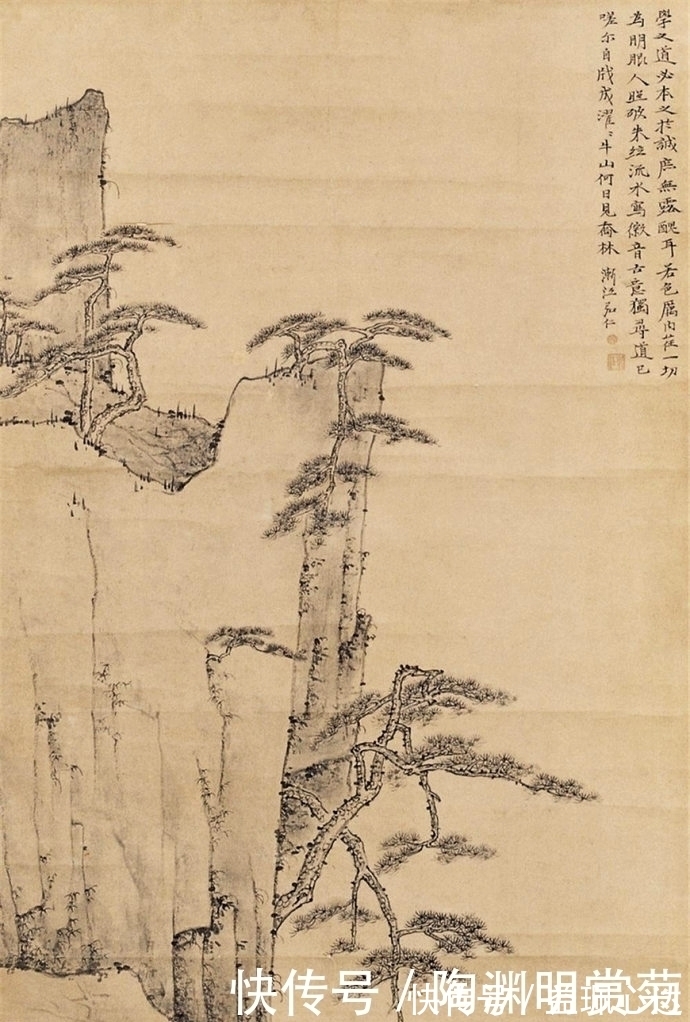 學之道必本之於誠庶無露醜耳若色厲內荏一切
為明眼人照破朱絃流水寫徽音古意獨尋道已
嗟尔自戕戕濯〻牛山何日見喬林 漸江弘仁
快传号 / 陶渊明赏菊
快传号 /